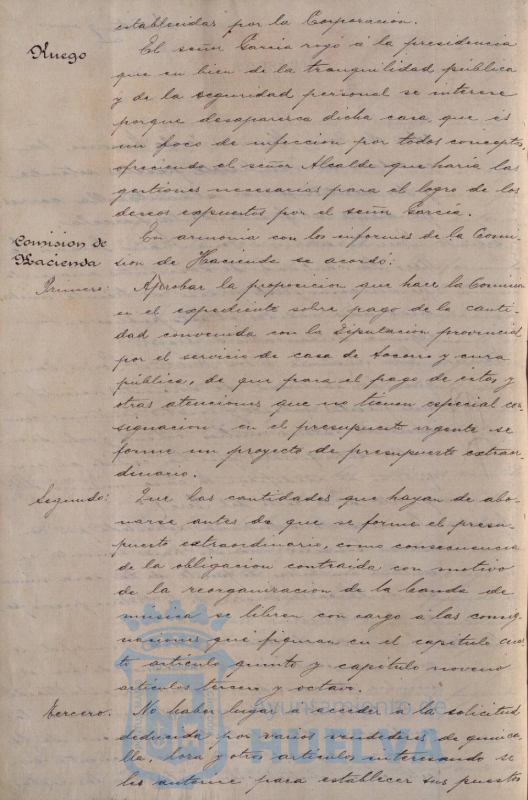 establecidas por la Corporación.
Ruego
El señor García rogó á la presidencia
que en bien de la tranquilidad pública
y de la seguridad personal se interese
porque desaparezca dicha casa, que es
un foco de infeccion por todos conceptos,
ofreciendo el señor Alcalde que haría las
gestiones necesarias para el logro de los
deseos expuestos por el señor García.
Comision de
Hacienda
En armonia con los informes de la Comi-
sion de Hacienda se acordó:
Primero: Aprobar la proposicion que hace la Comision
en el expediente sobre pago de la canti-
dad convenida con la Diputacion provincial
por el servicio de casa de Socorro y cura
pública, de que para el pago de éstas y
otras atenciones que no tienen especial con-
signacion en el presupuesto vigente se
forme un proyecto de presupuesto extraor-
dinario.
Segundo: Que las cantidades que hayan de abo-
narse antes de que se forme el presu-
puesto extraordinario, como consecuencia
de la obligacion contraida con motivo
de la reorganizacion de la banda de
música se libren con cargo á las consig-
naciones que figuran en el capitulo cuar-
to articulo quinto y capitulo noveno
articulos tercero y octavo.
Tercero. No haber lugar á acceder á la solicitud
deducida por varios vendedores de quinca-
lla, loza y otros articulos interesando se
les autorice para establecer sus puestos
Ayuntamiento de
HUELVA